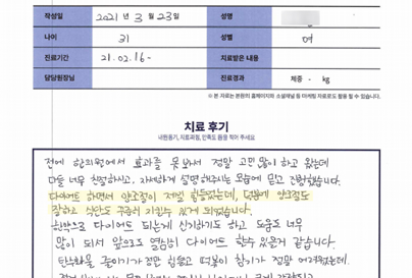 작성일 2021 년 3 월 23일 성명
나이 31 성별 여
진료기간 21.02.16- 치료받은 내용
담당원장님 진료경과 체중 - kg
※ 본 자료는 본원의 홈페이지와 소셜채널 등 마케팅 자료로도 활용 될 수 있습니다.
치료 후기
내원동기, 치료과정, 만족도 등을 적어 주세요
전에 한의원에서 효과를 못봐서 정말 고민 많이 하고 왔는데
다들 너무 친절하시고. 자세하게 설명해주시는 모습에 믿고 진행했습니다.
다이어트 하면서 양조절이 제일 힘들었는데, 덕분에 양조절도
잘하고 식단도 꾸준히 지킬수 있게 되었습니다.
한약으로 다이어트 되는게 신기하기도 하고 도움도 너무
많이 되서 앞으로도 열심히 다이어트 할수 있을거 같습니다.
탄수화물 줄이기가 정말 힘들고 더복이 참기가 정말 어려웠는데.